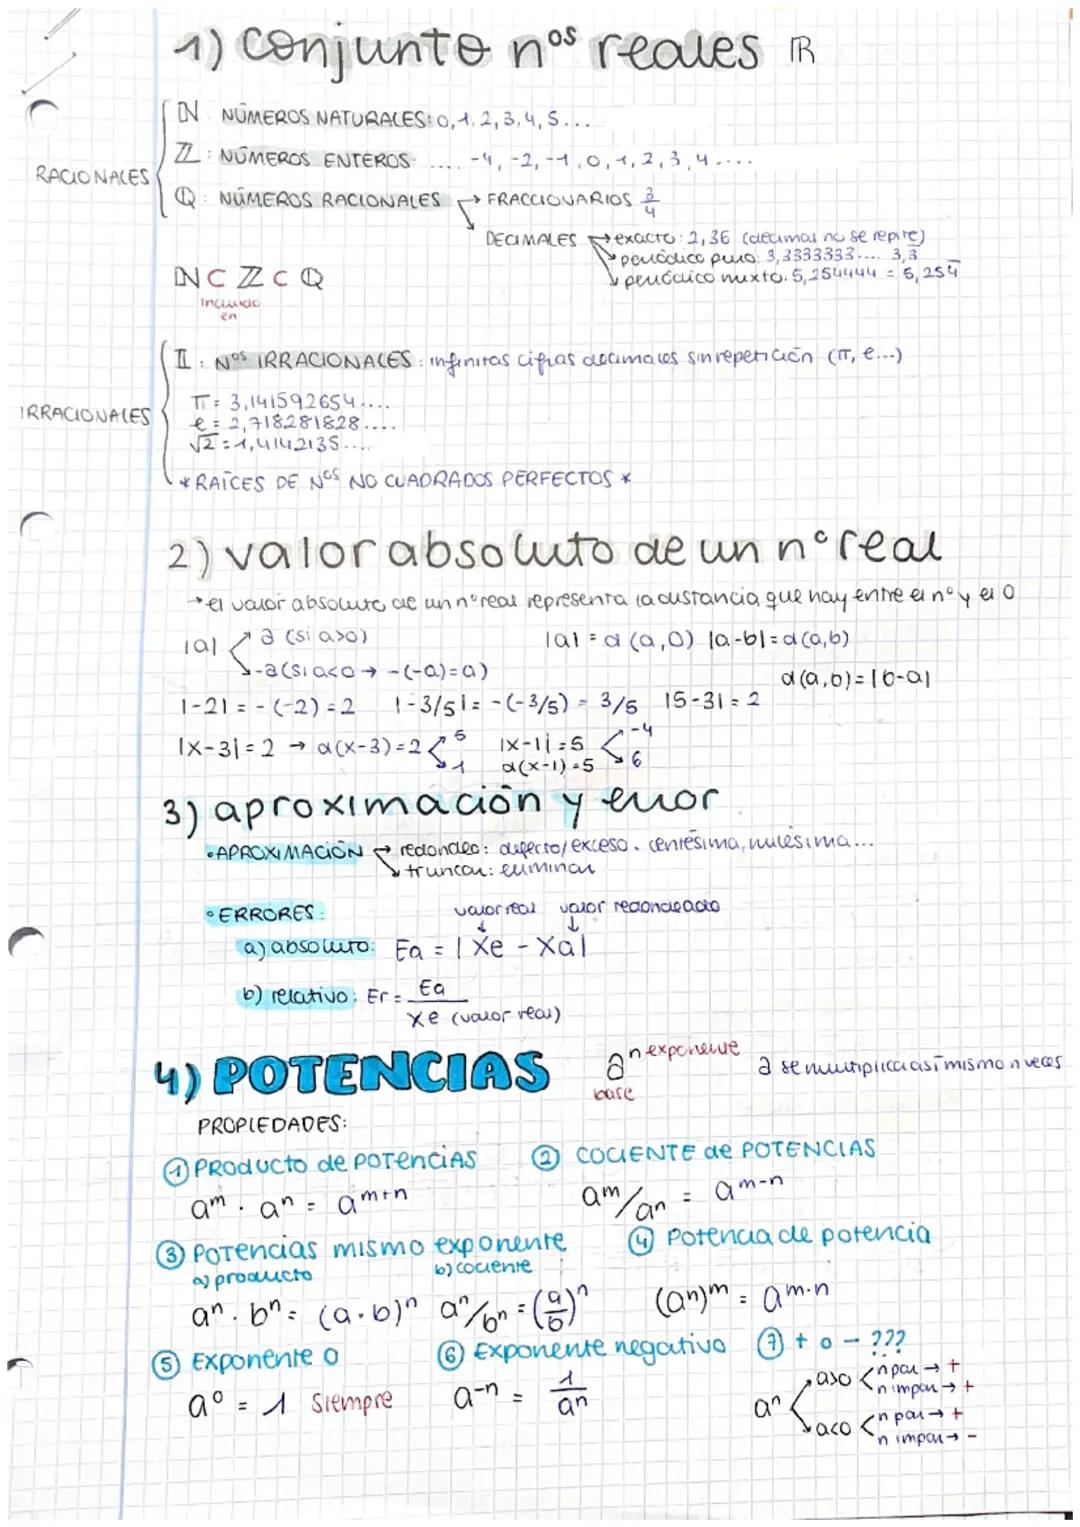 1) conjunto nºs reales ℝ
ℕ: NÚMEROS NATURALES: 0, 1, 2, 3, 4, 5...
ℤ: NÚMEROS ENTEROS: .... -4, -2, -1, 0, 1, 2, 3, 4....
RACIONALES
ℚ: NÚMEROS RACIONALES → FRACCIONARIOS 3/4
DECIMALES → exacto: 2,36 (decimal no se repite)
periódico puro: 3,3333333.... 3,3̅
periódico mixto: 5,254444 = 5,254̅
ℕ ⊂ ℤ ⊂ ℚ
incluido
en
𝕀: Nºs IRRACIONALES: infinitas cifras decimales sin repetición (π, e...)
IRRACIONALES
π = 3,141592654....
e = 2,718281828....
√2 = 1,4142135....
*RAÍCES DE Nºs NO CUADRADOS PERFECTOS*
2) valor absoluto de un nº real
→ el valor absoluto de un nº real representa la distancia que hay entre el nº y el 0
|a| a (si a>0)
-a (si a<0 → -(-a)=a)
|a| = d(a,0) |a-b| = d(a,b)
d(a,b) = |b-a|
|-2| = -(-2) = 2 |-3/5| = -(-3/5) = 3/5 |5-3| = 2
|x-3| = 2 → d(x-3) = 2 5 1
|x-1| = 5 -4 6
d(x-1) = 5
3) aproximación y error
• APROXIMACIÓN → redondeo: defecto/exceso. centésima, milésima...
truncar: eliminar
• ERRORES:
valor real valor redondeado
a) absoluto: Ea = |Xe - Xa|
b) relativo: Er = Ea / Xe (valor real)
4) POTENCIAS
aⁿ exponente
base
a se multiplica así mismo n veces
PROPIEDADES:
① PRODUCTO de POTENCIAS
② COCIENTE de POTENCIAS
aᵐ · aⁿ = aᵐ⁺ⁿ
aᵐ/aⁿ = aᵐ⁻ⁿ
③ POTENCIAS mismo exponente
④ Potencia de potencia
a) producto
b) cociente
aⁿ · bⁿ = (a·b)ⁿ aⁿ/bⁿ = (a/b)ⁿ
(aⁿ)ᵐ = aᵐ·ⁿ
⑤ Exponente 0
⑥ Exponente negativo
⑦ + o - ???
a⁰ = 1 siempre
a⁻ⁿ = 1/aⁿ
aⁿ
a>0 n par → +
n impar → +
a<0 n par → +
n impar → -